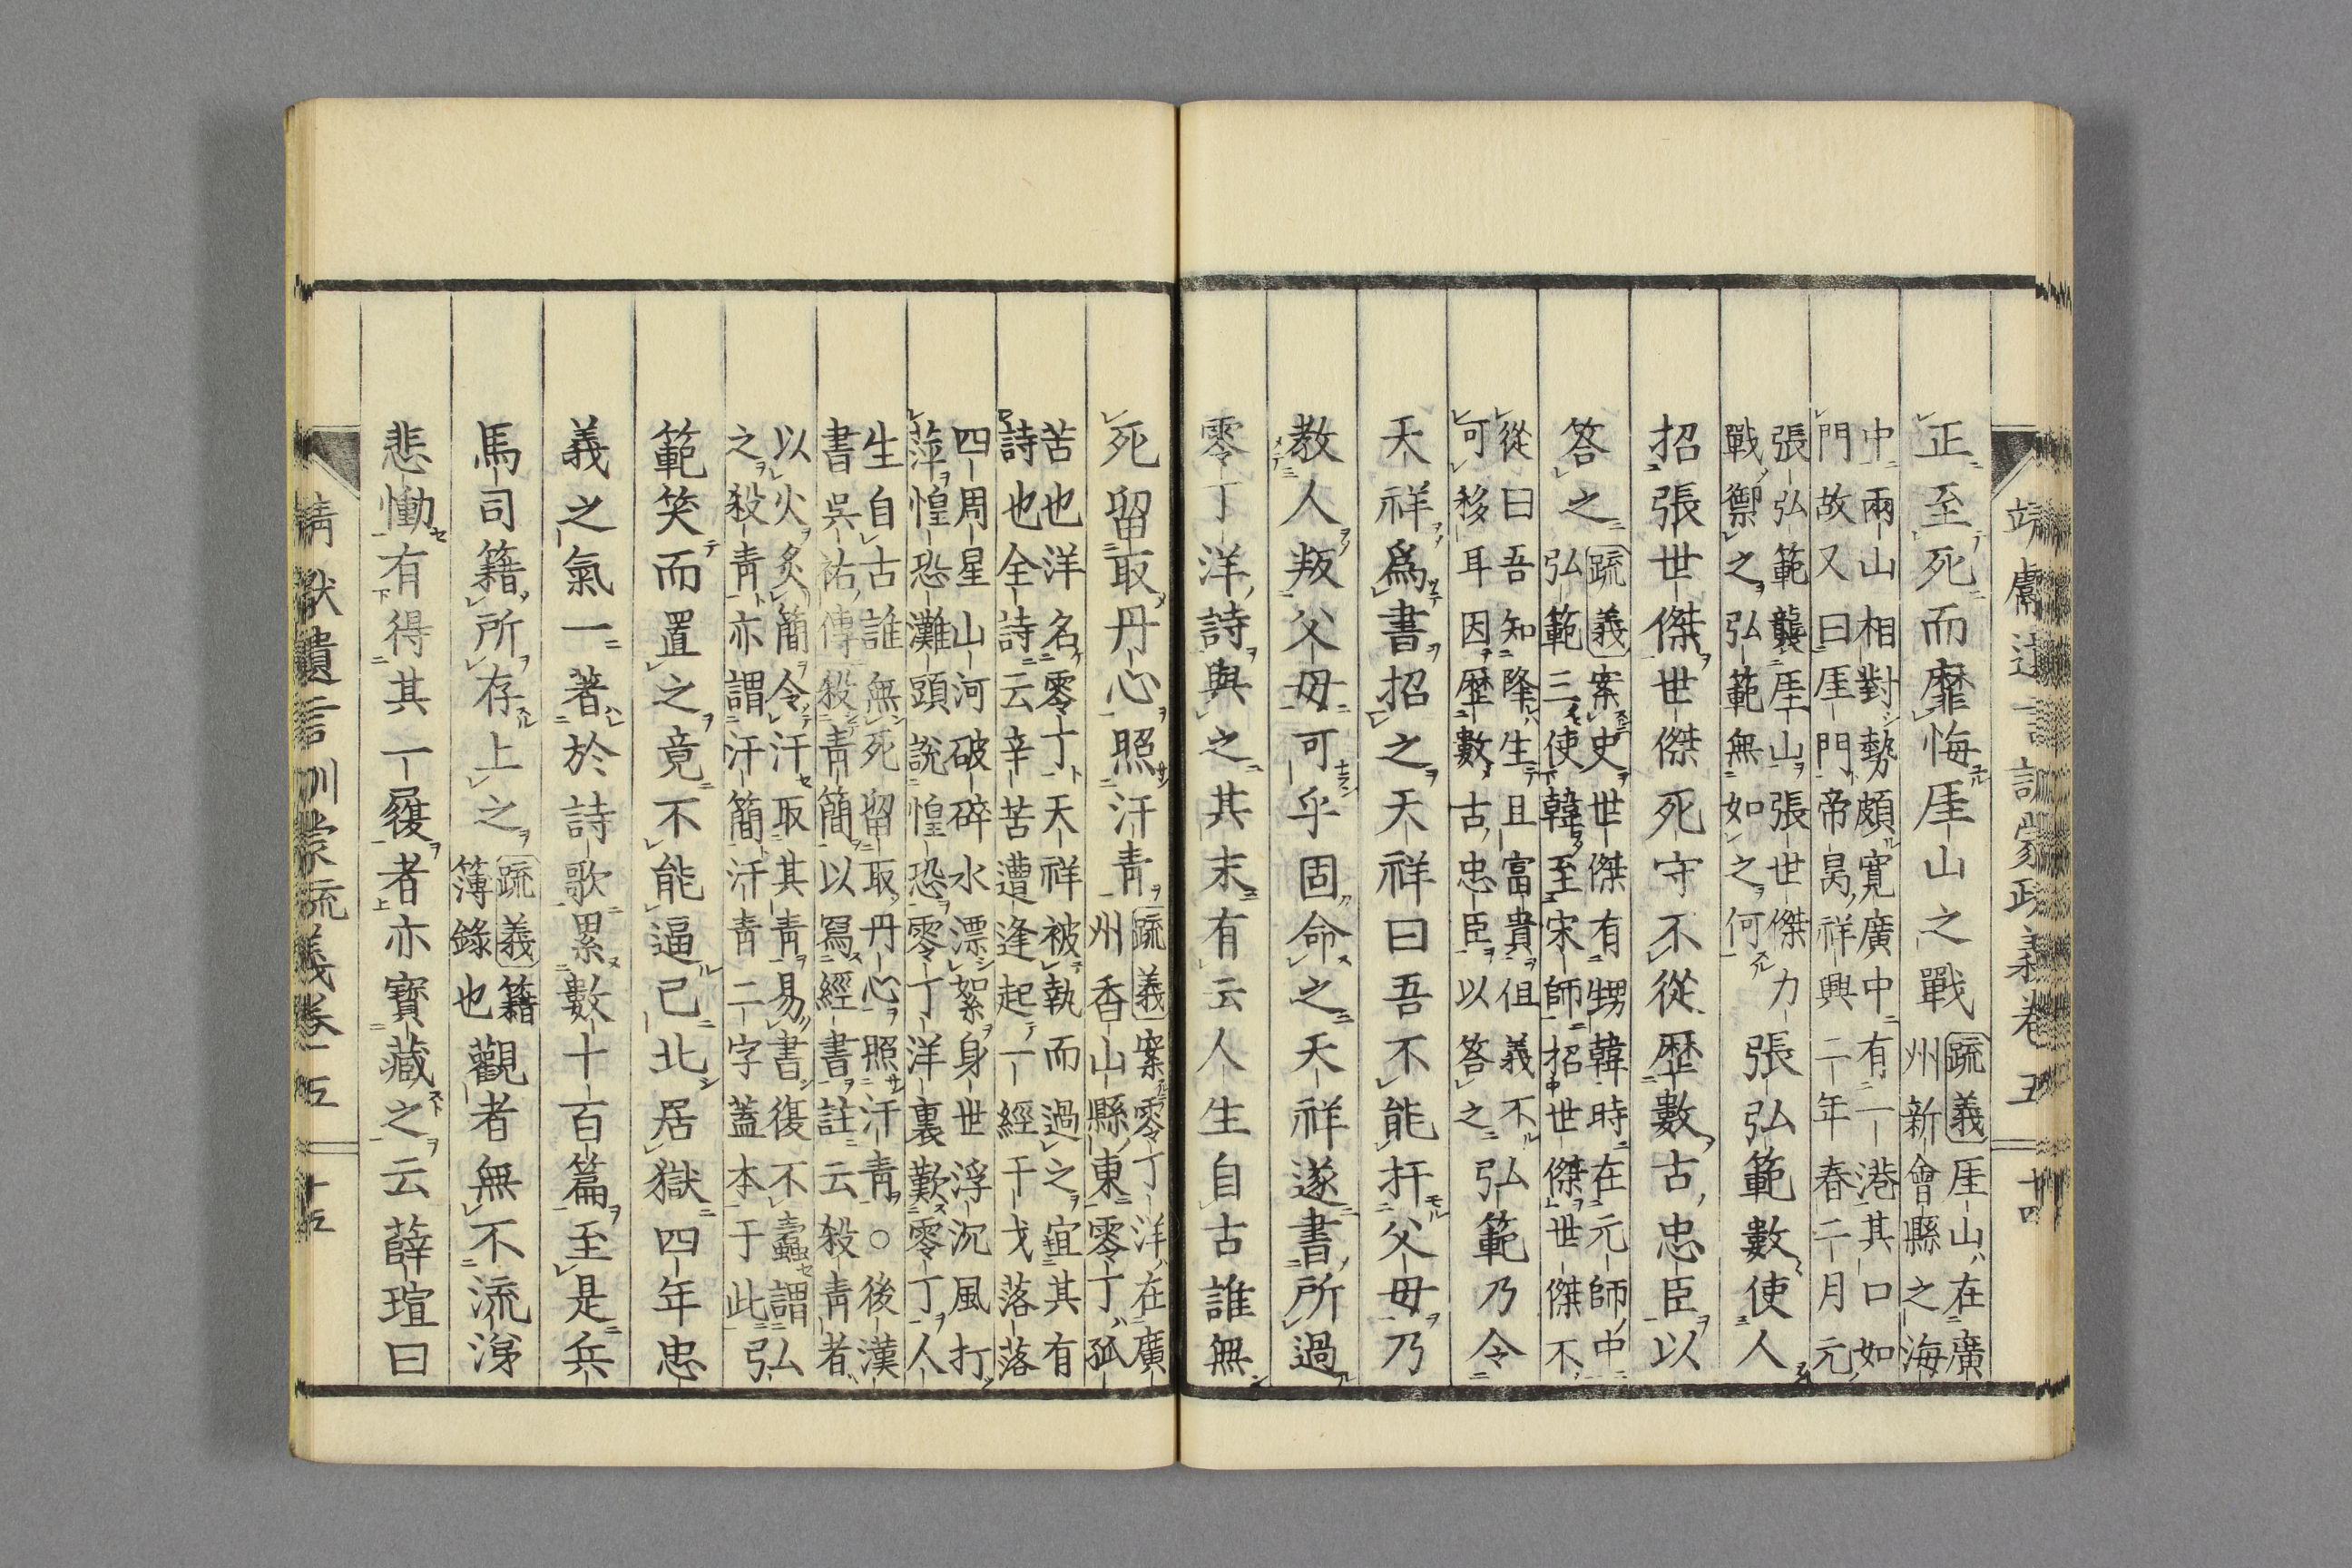 靖獻遺言訓蒙疏義卷五　十四
正至死而靡悔厓山之戰
疏義厓山在廣
州新會縣之海
中兩山相對勢頗寬廣中有一港其口如
門故又曰厓門帝昺祥興二年春二月元
張弘範襲厓山張世傑力
戰禦之弘範無如之何
張弘範數使人
招張世傑世傑死守不從歴數古忠臣以
答之
疏義案史世傑有甥韓時在元師中
弘範三使韓至宋師招世傑世傑不
從曰吾知降生且富貴但義不
可移耳因歴數古忠臣以答之
弘範乃令
天祥爲書招之天祥曰吾不能扞父母乃
教人叛父母可乎固命之天祥遂書所過
零丁洋詩與之其末有云人生自古誰無
死留取丹心照汗青
疏義案零丁洋在廣
州香山縣東零丁孤
苦也洋名零丁天祥被執而過之宜其有
詩也全詩云辛苦遭逢起一經干戈落落
四周星山河破碎水漂絮身世浮沉風打
萍惶恐灘頭說惶恐零丁洋裏歎零丁人
生自古誰無死留取丹心照汗青○後漢
書吳祐傳殺青簡以寫經書註云殺青者
以火炙簡令汗取其青易書復不蠹謂
之殺青亦謂汗簡汗青二字蓋本于此
弘
範笑而置之竟不能逼已北居獄四年忠
義之氣一著於詩歌累數十百篇至是兵
馬司籍所存上之
疏義籍
簿錄也
觀者無不流涕
悲慟有得其一履者亦寶藏之云薛瑄曰
靖獻遺言訓蒙疏義卷五　十五